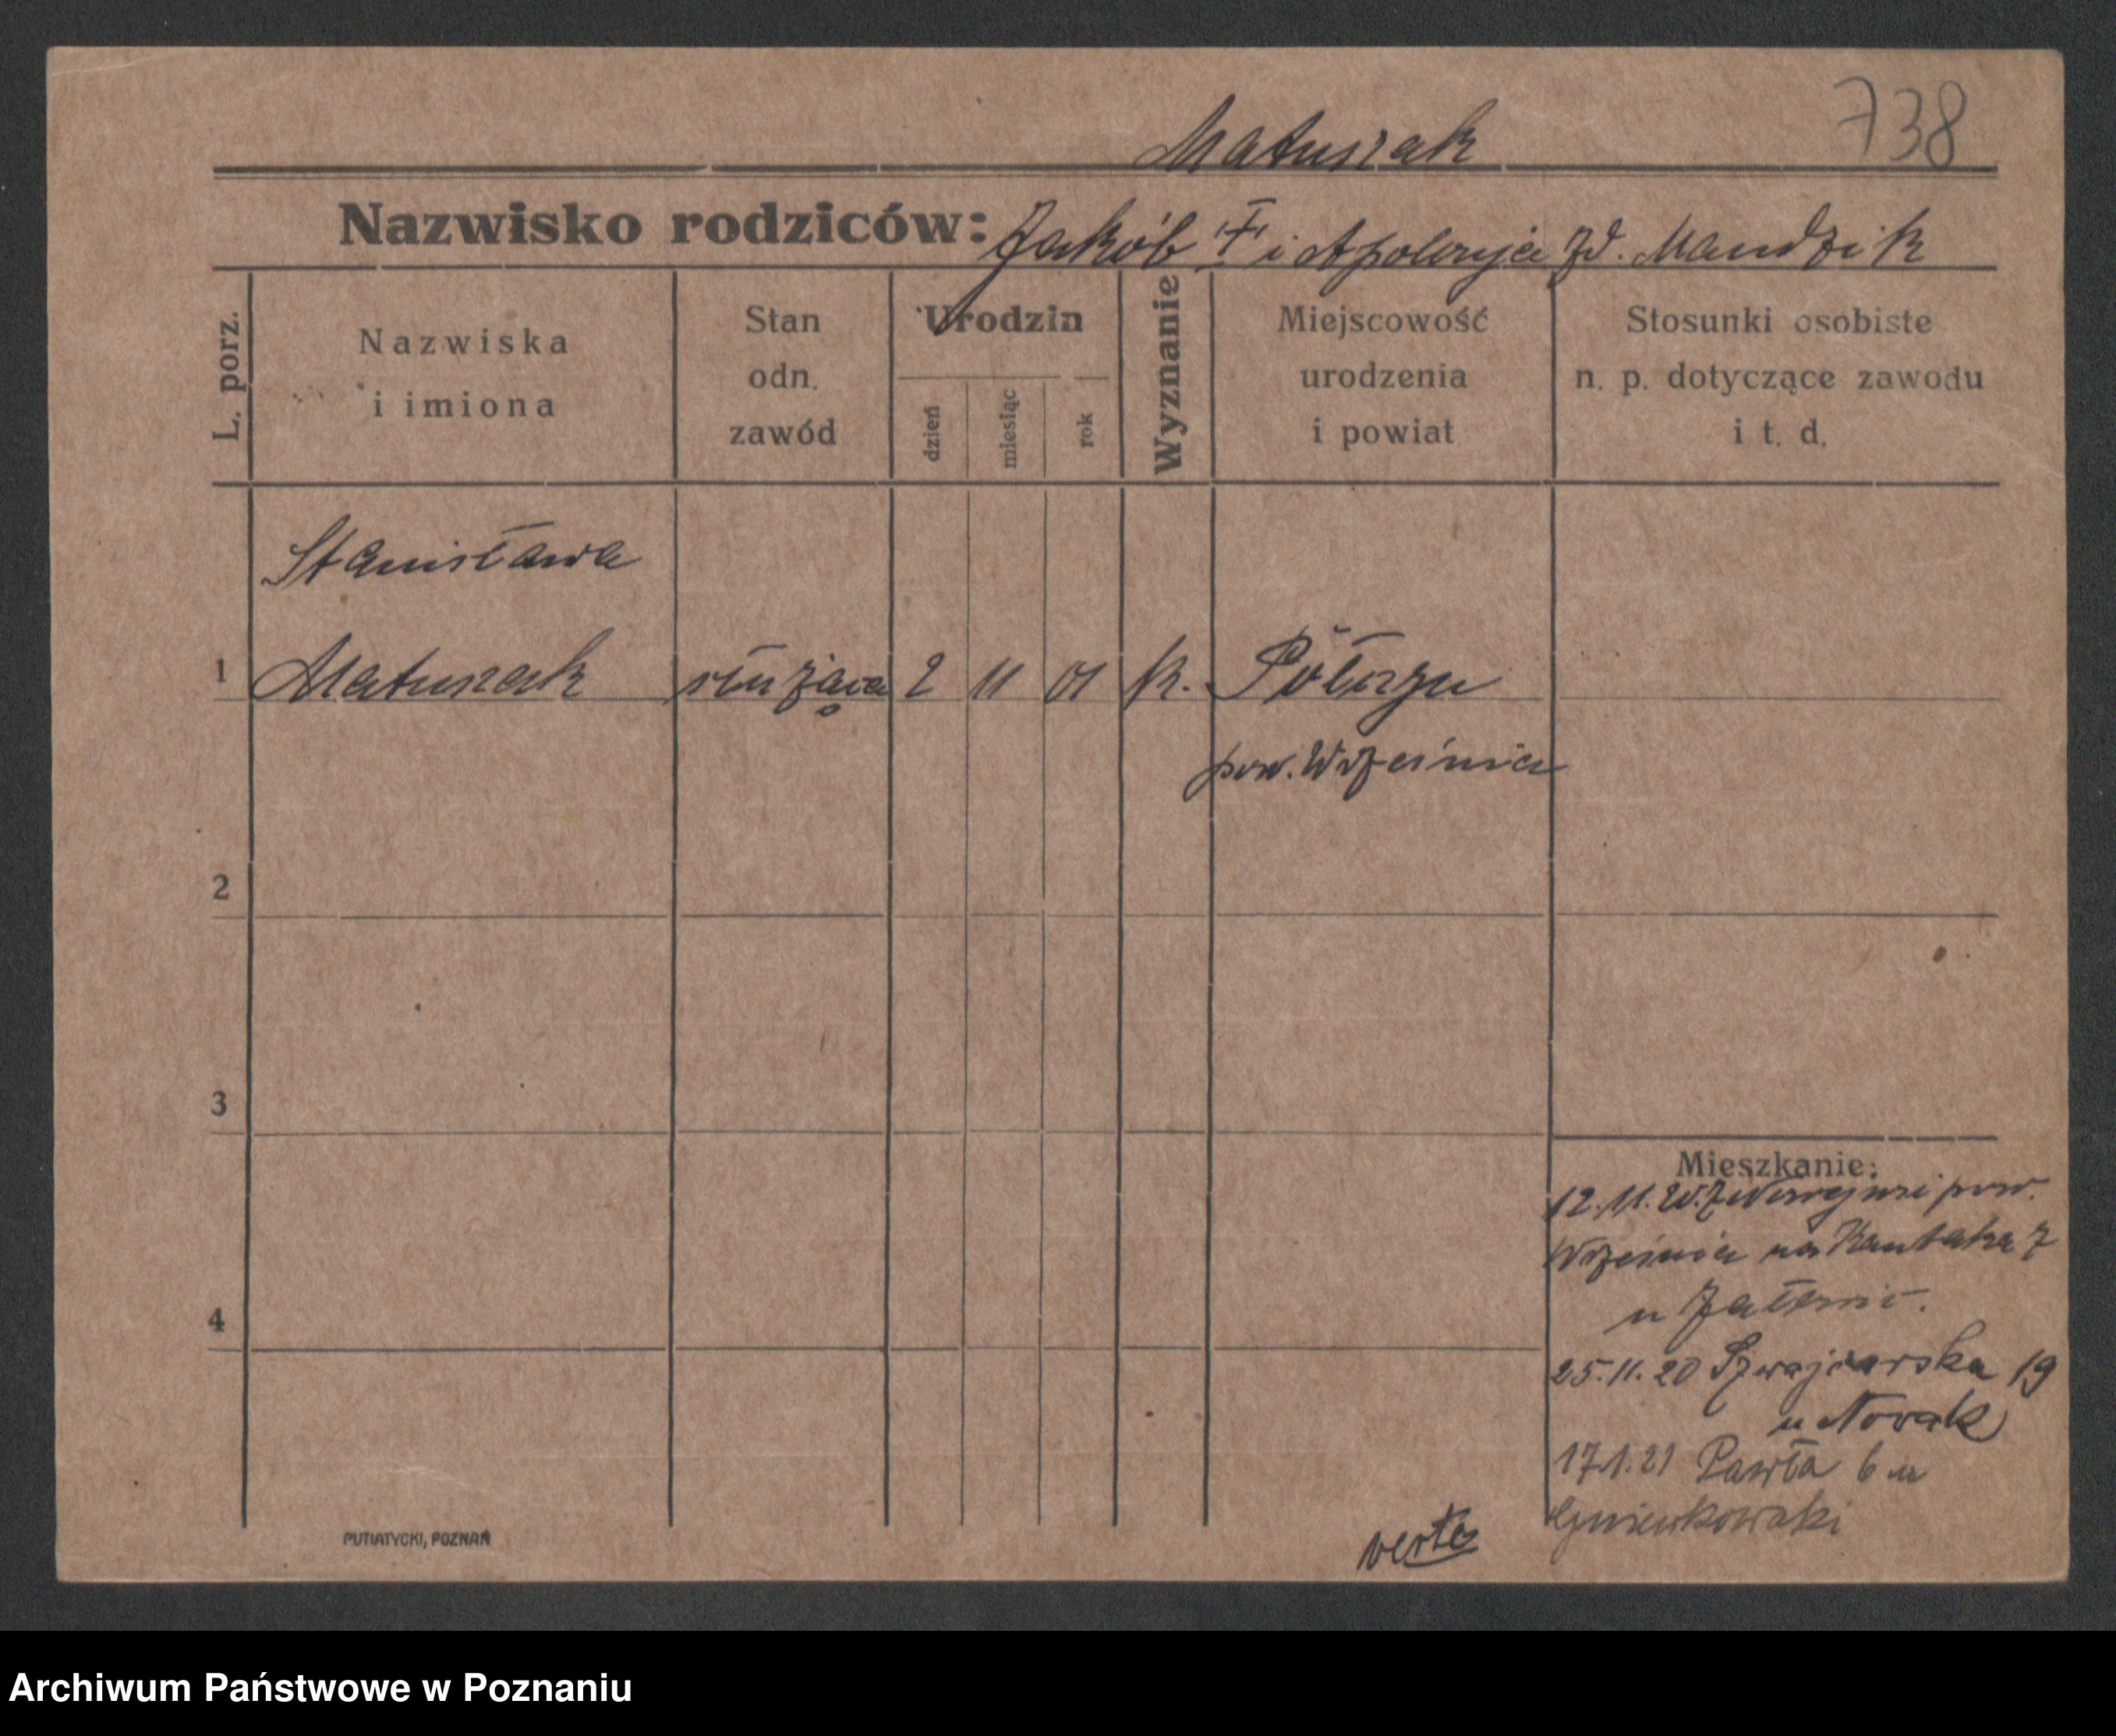 738
Matuszak
Nazwisko rodziców: Jakób "†" i Apolonja zd. Mandzik
L. porz.
Nazwiska
i imiona
Stan
odn.
zawód
Urodzin
dzień
miesiąc
rok
Wyznanie
Miejscowość
urodzenia
i powiat
Stosunki osobiste
n. p. dotyczące zawodu
i t. d.
Stanisława
1 Matuszak służąca 2 11 01 k.
pow. Września
2
3
4
Mieszkanie:
12.11. pow.
Września na Kantaka 7
u
25.11.20 Szwajcarska 19
u Nowak
17.1.21 Pawła 6 u
Gniewkowski
verte
PUTIATYCKI, POZNAŃ
Archiwum Państwowe w Poznaniu